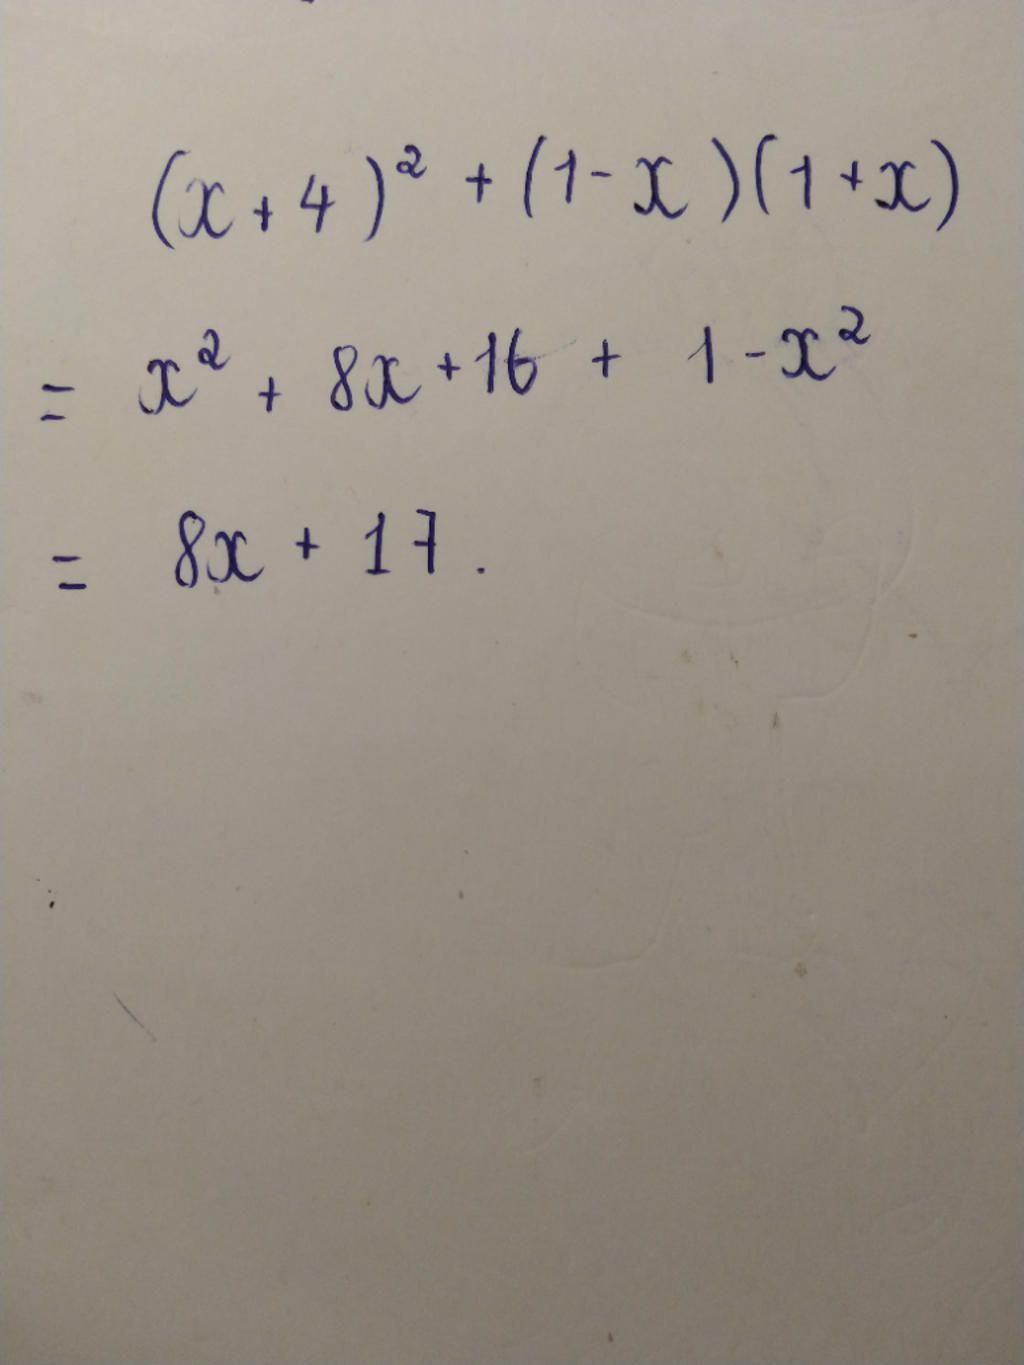 (x+4)² + (1-x)(1+x)
= x² + 8x+16 + 1-x²
= 8x + 17.